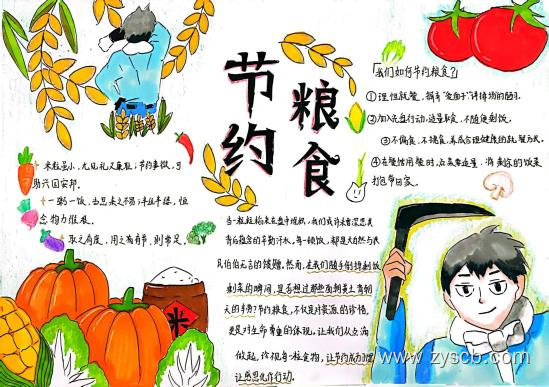 节约
粮食
「我们如何节约粮食?」
①理性就餐,摒弃"爱面子"讲排场的陋习。
②加入光盘行动,适量取食,不随便剩饭。
③不偏食,不挑食,养成合理健康的就餐方式。
④在餐馆用餐时,点菜要适量,将剩余的饭菜
打包带回家。
米粒虽小,尤见礼义廉耻;节约事微,可
助兴国安邦。
一粥一饭,当思来之不易;半丝半缕,恒
念物力维艰。
取之有度,用之有节,则常足。
当一粒粒粮米在盘中堆积,我们或许未曾深思其
背后蕴含的辛勤汗水,每一顿饭,都是大自然与农
民伯伯无言的馈赠。然而,在我们随手倒掉剩饭
剩菜的瞬间,是否想过那些面朝黄土背朝
天的手势?节约粮食,不仅是对资源的珍惜,
更是对生命尊重的体现。让我们从点滴
做起,珍视每一粒食物,让节约成为习惯
让感恩化作行动。
米
www.zyscb.com